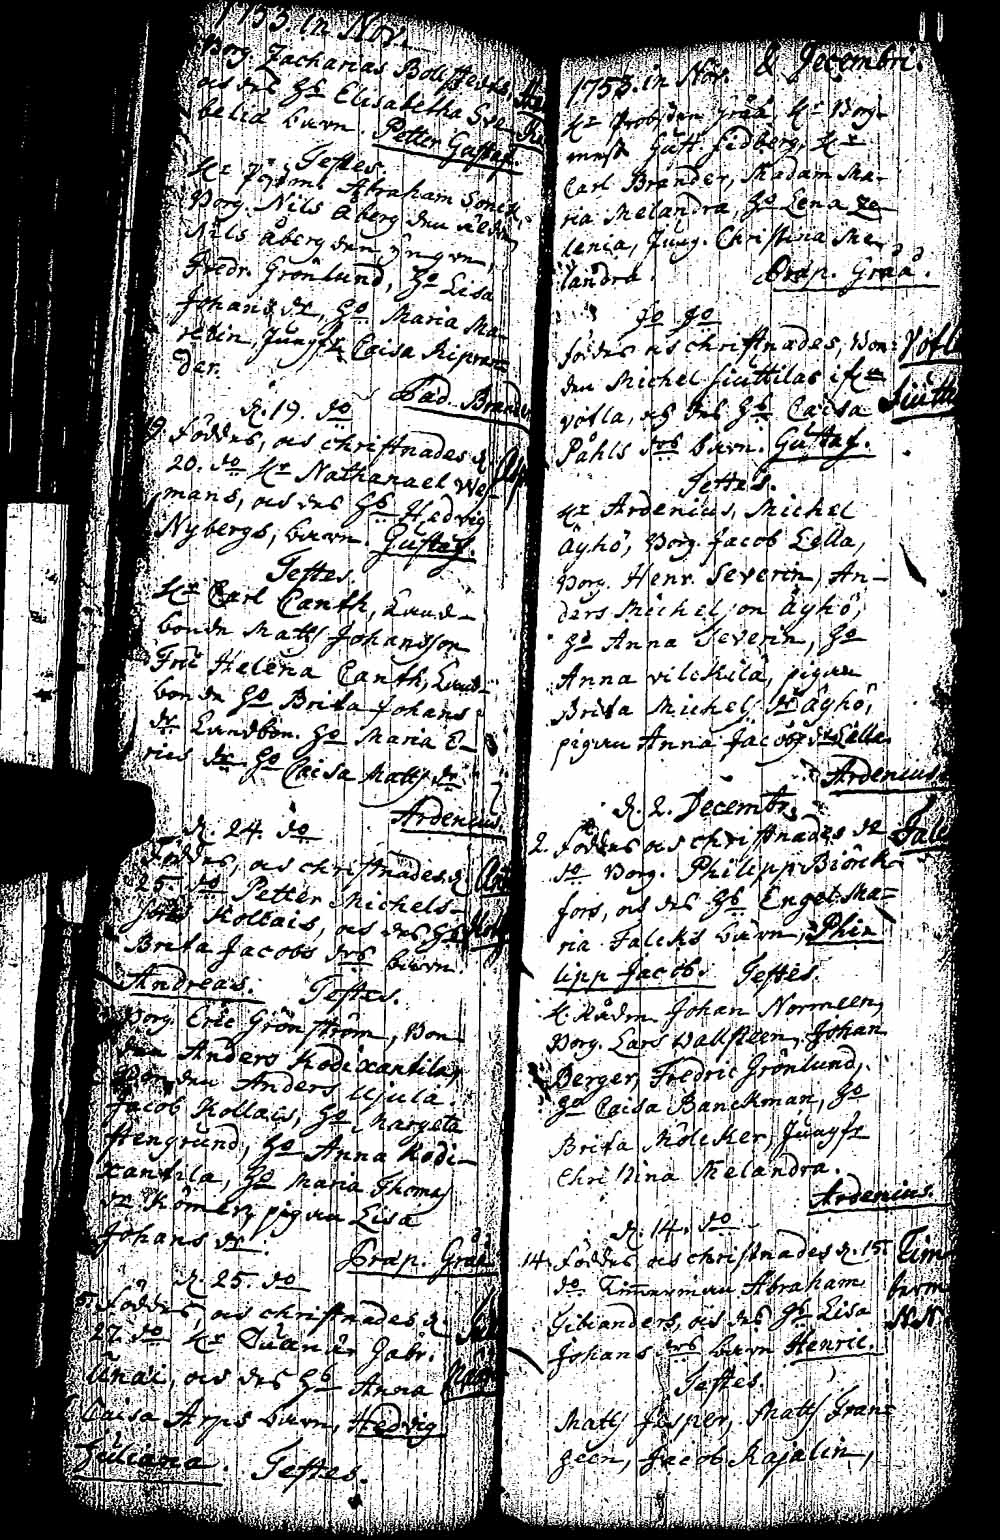 1753. in Nov.
Borg. Zacharias Bollstedts,
och des Ho Elisabetha Sve
belia barn. Petter Gustaf.
Testes.
Hr Abraham Sonck,
Borg. Nils Åberg den äldre,
Nils Åberg den yngre,
Fredr. Grönlund, Ho Lisa
Johans dr, Ho Maria Ma-
relin, Jungfr Caisa Ripren-
der.
Päd. Brander
d. 19. do
19 Föddes, och christnades d.
20. do Hr Nathanael Wes-
mans, och des Ho Hedvig
Nybergs, barn. Gustaf.
Testes.
Hr Carl Canth, Land-
bonde Matts Johansson
Fru Helena Canth, Land-
bonde Ho Brita Johans
dr Landbon. Ho Maria E-
rics dr Ho Caisa Matts dr
Ardenius.
d. 24. do
Föddes, och christnades d.
25. do Petter Michels-
sons Kollais, och des Ho
Brita Jacobs drs barn.
Andreas. Testes.
Borg. Eric Grönström, Bon-
den Anders Kodixantila,
Bonden Anders Ujula.
Jacob Kollais, Ho Margeta
Stengrund, Ho Anna Kodi-
xantila, Ho Maria Thomas
dr Kömäry pigan Lisa
Johans dr.
Præp. Grå
d. 25. do
Föddes, och christnades d.
27. do Hr Gabr.
Unai, och des Ho Anna
Caisa Arps barn, Hedvig
Juliana. Testes.
11
1753. in Nov. & Decembri.
Hr Probsten Gråå, Hr Borg-
mest Gust. Sidberg, Hr
Carl Brander, Madam Ma-
ria Melandra, Ho Lena Ze-
lenia, Jung. Christina Me-
landra. Præp. Gråå.
do do
Föddes och christnades, Bon-
den Michel Siuttilas ifrn
Votla, och des Ho Caisa
Påhls drs barn. Gustaf.
Testes.
Hr Ardenius, Michel
Äyhö, Borg. Jacob Lella,
Borg. Henr. Severin, An-
ders Michelson Äyhö,
Ho Anna Severin, Ho
Anna vilckilä, pigan
Brita Michels dr Äyhö,
pigan Anna Jacobs dr Lella.
Ardenius.
d. 2. Decembr.
2. Föddes och christnades de
do Borg. Philipp Biörck-
fors, och des Ho Engel Ma-
ria Falcks barn, Phi-
lipp Jacob. Testes.
H. Rådm Johan Normeen,
Borg. Lars Wallsteen, Johan
Berger, Fredric Grönlund,
Ho Caisa Banckman, Ho
Brita Mölcker, Jungfr
Christina Melandra.
Ardenius.
d. 14. do
14. Föddes och christnades d. 15.
do Timmerman Abraham
Gibianders, och des Ho Lisa
Johans drs barn Henric.
Testes.
Matts Jesper, Matts Fran-
zeen, Jacob Rajalin,